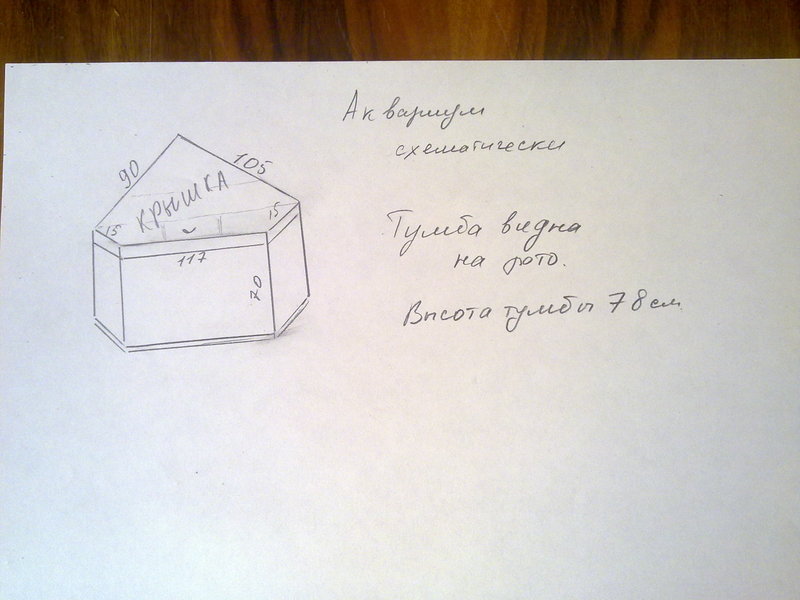 Аквариум
схематически
90
105
КРЫШКА
15
15
117
70
Тумба видна
на фото.
Высота тумбы 78см